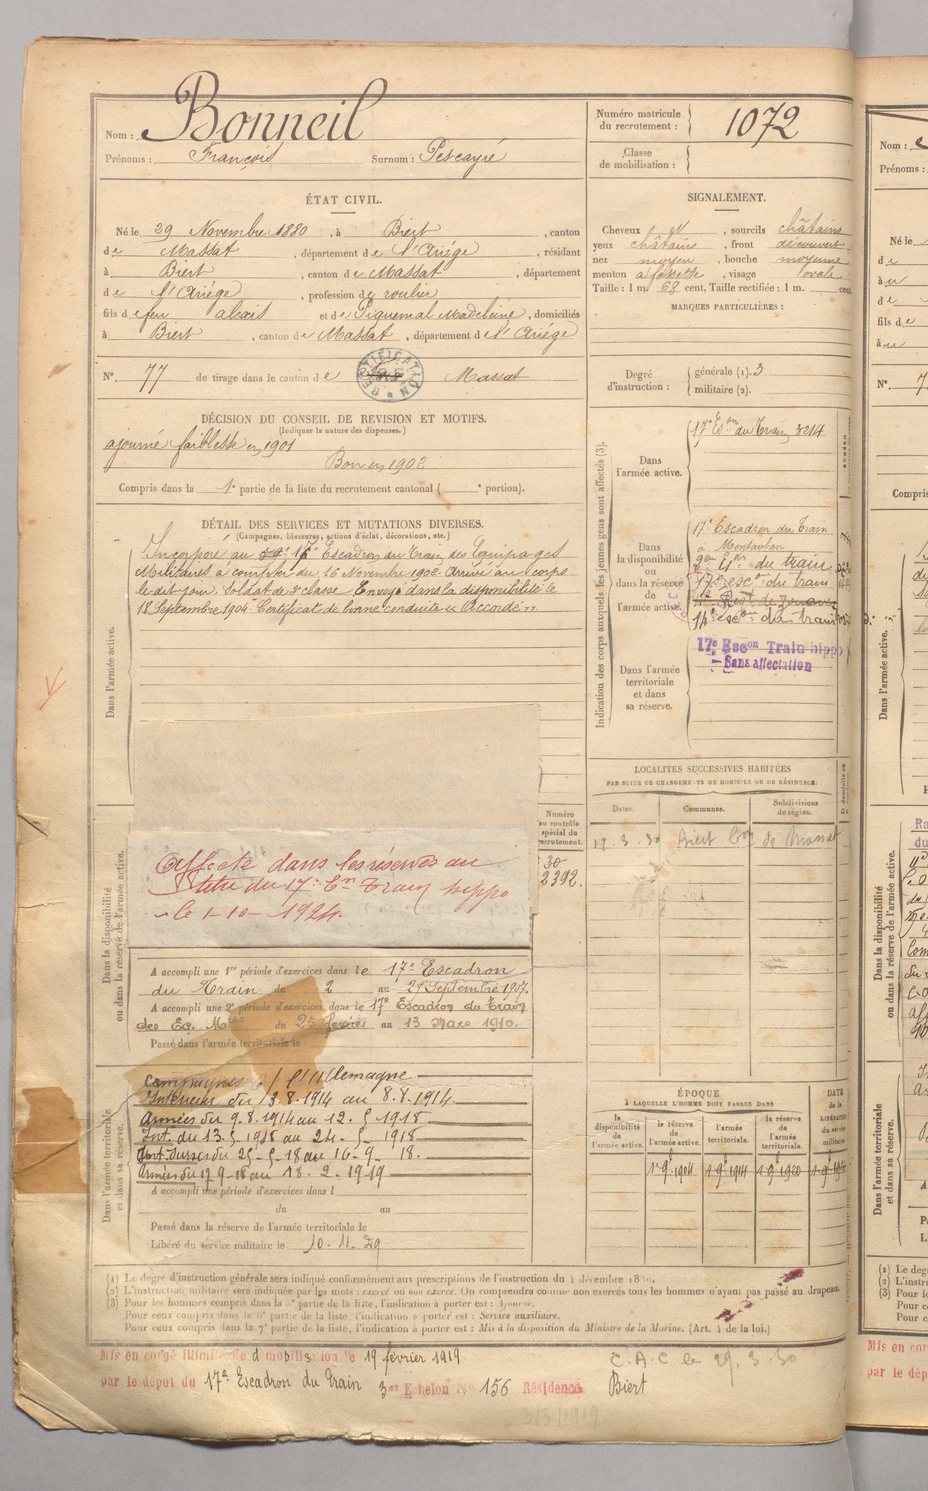 Nom : Bonneil
Prénoms : François Surnom : Pescayré
Numéro matricule du recrutement : 1072
Classe de mobilisation :
ÉTAT CIVIL.
Né le 29 Novembre 1880, à Biert, canton
de Massat, département de l'Ariége, résidant
à Biert, canton de Massat, département
de l'Ariége, profession de roulier
fils de feu alexis et de Piquemal Madeleine, domiciliés
à Biert, canton de Massat, département de l'Ariége
N° 77 de tirage dans le canton de Massat
RECTIFICATION
SIGNALEMENT.
Cheveux , sourcils châtains
yeux châtains, front découvert
nez moyen, bouche moyenne
menton à fossette, visage ovale
Taille : 1 m. 68 cent, Taille rectifiée : 1 m. cent
MARQUES PARTICULIÈRES :
Degré d'instruction : générale (1). 3
militaire (2).
DÉCISION DU CONSEIL DE REVISION ET MOTIFS.
(Indiquer la nature des dispenses.)
ajourné faiblesse en 1901
Bon en 1902
Compris dans la 1e partie de la liste du recrutement cantonal ( e portion).
DÉTAIL DES SERVICES ET MUTATIONS DIVERSES.
(Campagnes, blessures, actions d'éclat, décorations, etc.)
Dans l'armée active.
Incorporé au 17e Escadron du Train des Equipages
Militaires à compter du 16 Novembre 1902. Arrivé au corps
le dit jour. Soldat de 2e classe. Envoyé dans la disponibilité le
18 Septembre 1904. Certificat de bonne conduite « Accordé »
Indication des corps auxquels les jeunes gens sont affectés (3).
Dans l'armée active.
17e Eson du Train 3214
Dans la disponibilité ou dans la réserve de l'armée active.
17e Escadron du Train
à Montauban
du train
17e escon du train
Regt de zouaves
14e escon du train
Dans l'armée territoriale et dans sa réserve.
17e Escon Train hippo
Sans affectation
Dans la disponibilité ou dans la réserve de l'armée active.
Numéro au contrôle spécial du recrutement.
30
2392.
Affecté dans les réserves au
titre du 17e En Train hippo
le 1-10-1924.
A accompli une 1re période d'exercices dans le 17e Escadron
du Train du 2 au 29 Septembre 1907.
A accompli une 2e période d'exercices dans le 17e Escadron du Train
des Eq. Mres du 25 février au 13 Mars 1910.
Passé dans l'armée territoriale le
Dans l'armée territoriale et dans sa réserve.
Campagnes c/ l'Allemagne
Intérieur du 3.8.1914 au 8.8.1914.
Armées du 9.8.1914 au 12.5.1918
Int. du 13-5-1918 au 24-5-1918
du 25-5-18 au 16-9-18.
Armées du 17-9-18 au 18-2-1919
A accompli une période d'exercices dans l
du au
Passé dans la réserve de l'armée territoriale le
Libéré du service militaire le 10-11-29
LOCALITÉS SUCCESSIVES HABITÉES
PAR SUITE DE CHANGEMENTS DE DOMICILE OU DE RÉSIDENCE.
Dates. Communes. Subdivisions de région.
3.30 Biert Con de Massat
ÉPOQUE
À LAQUELLE L'HOMME DOIT PASSER DANS
la disponibilité de l'armée active.
la réserve de l'armée active. 1r 9e 1904
l'armée territoriale. 1 9e 1914
la réserve de l'armée territoriale. 1 9e 1920
DATE de la LIBÉRATION du service militaire
(1) Le degré d'instruction générale sera indiqué conformément aux prescriptions de l'instruction du 4 décembre
(2) L'instruction militaire sera indiquée par les mots : exercé ou non exercé. On comprendra comme non exercés tous les hommes n'ayant pas passé au drapeau.
(3) Pour les hommes compris dans la 5e partie de la liste, l'indication à porter est : Ajourné.
Pour ceux compris dans la 6e partie de la liste, l'indication à porter est : Service auxiliaire.
Pour ceux compris dans la 7e partie de la liste, l'indication à porter est : Mis à la disposition du Ministre de la Marine. (Art. 4 de la loi.)
Mis en congé illimité de démobilisation le 19 février 1919
par le dépôt du 17e Escadron du Train 3er Echelon N° 156 Résidence Biert
C.A.C le 29.3.30